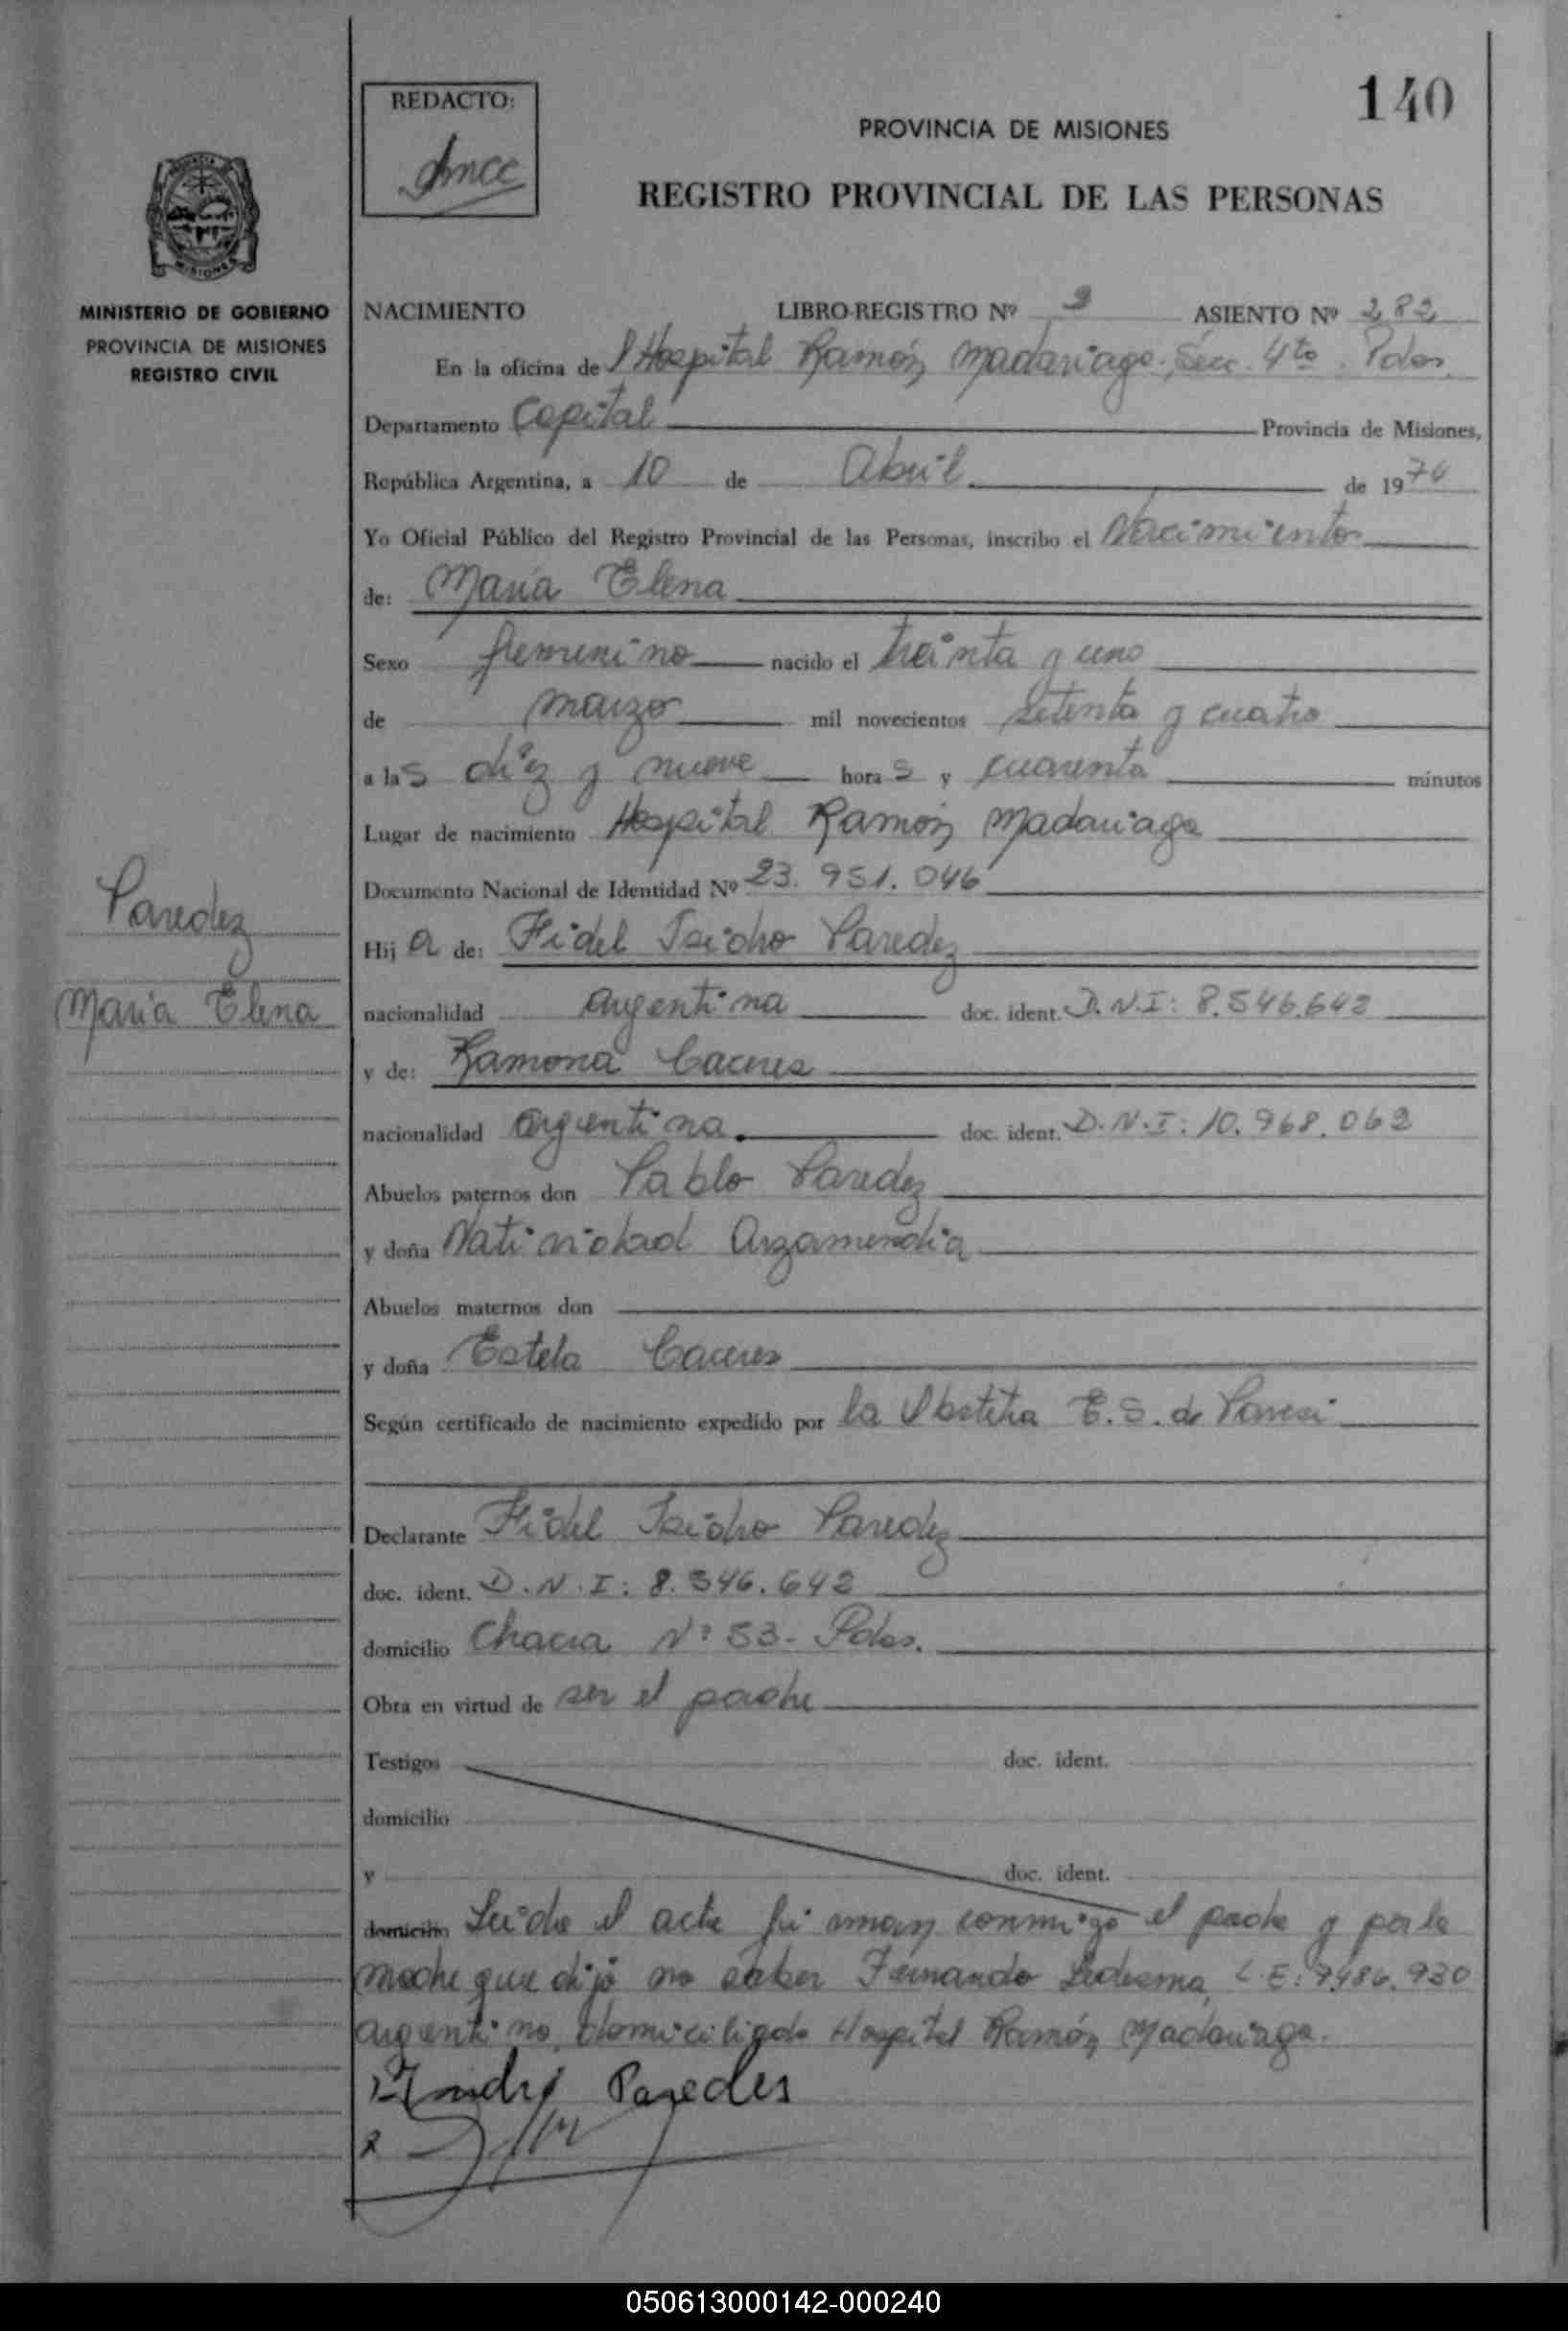 140
REDACTO:
PROVINCIA DE MISIONES
REGISTRO PROVINCIAL DE LAS PERSONAS
MISIONES
MINISTERIO DE GOBIERNO
PROVINCIA DE MISIONES
REGISTRO CIVIL
NACIMIENTO LIBRO-REGISTRO Nº ASIENTO Nº 282
En la oficina de Hospital Ramón Madariaga. Secc. 4ta. Pdas.
Departamento Capital Provincia de Misiones,
República Argentina, a 10 de Abril de 1974
Yo Oficial Público del Registro Provincial de las Personas, inscribo el Nacimiento
de: María Elena
Sexo femenino nacido el treinta y uno
de marzo mil novecientos setenta y cuatro
a las diez y nueve horas y cuarenta minutos
Lugar de nacimiento Hospital Ramón Madariaga
Documento Nacional de Identidad Nº 23.951.046
Paredez
Hija de: Fidel Isidro Paredez
María Elena
nacionalidad argentina doc. ident. D.N.I: 8.546.642
y de: Ramona Caceres
nacionalidad argentina. doc. ident. D.N.I: 10.968.062
Abuelos paternos don Pablo Paredez
y doña Natividad Arzamendia
Abuelos maternos don
y doña Estela Caceres
Según certificado de nacimiento expedido por la Obstetra E.S. de
Declarante Fidel Isidro Paredez
doc. ident. D.N.I: 8.546.642
domicilio Chacra Nº 53- Pdas.
Obra en virtud de ser el padre
Testigos doc. ident.
domicilio
y doc. ident.
domicilio Leida el acta firman conmigo el padre y por la
madre que dijo no saber Fernando Ledesma, L.E: 7.486.930
argentino, domiciliado Hospital Ramón Madariaga.
Paredes
050613000142-000240